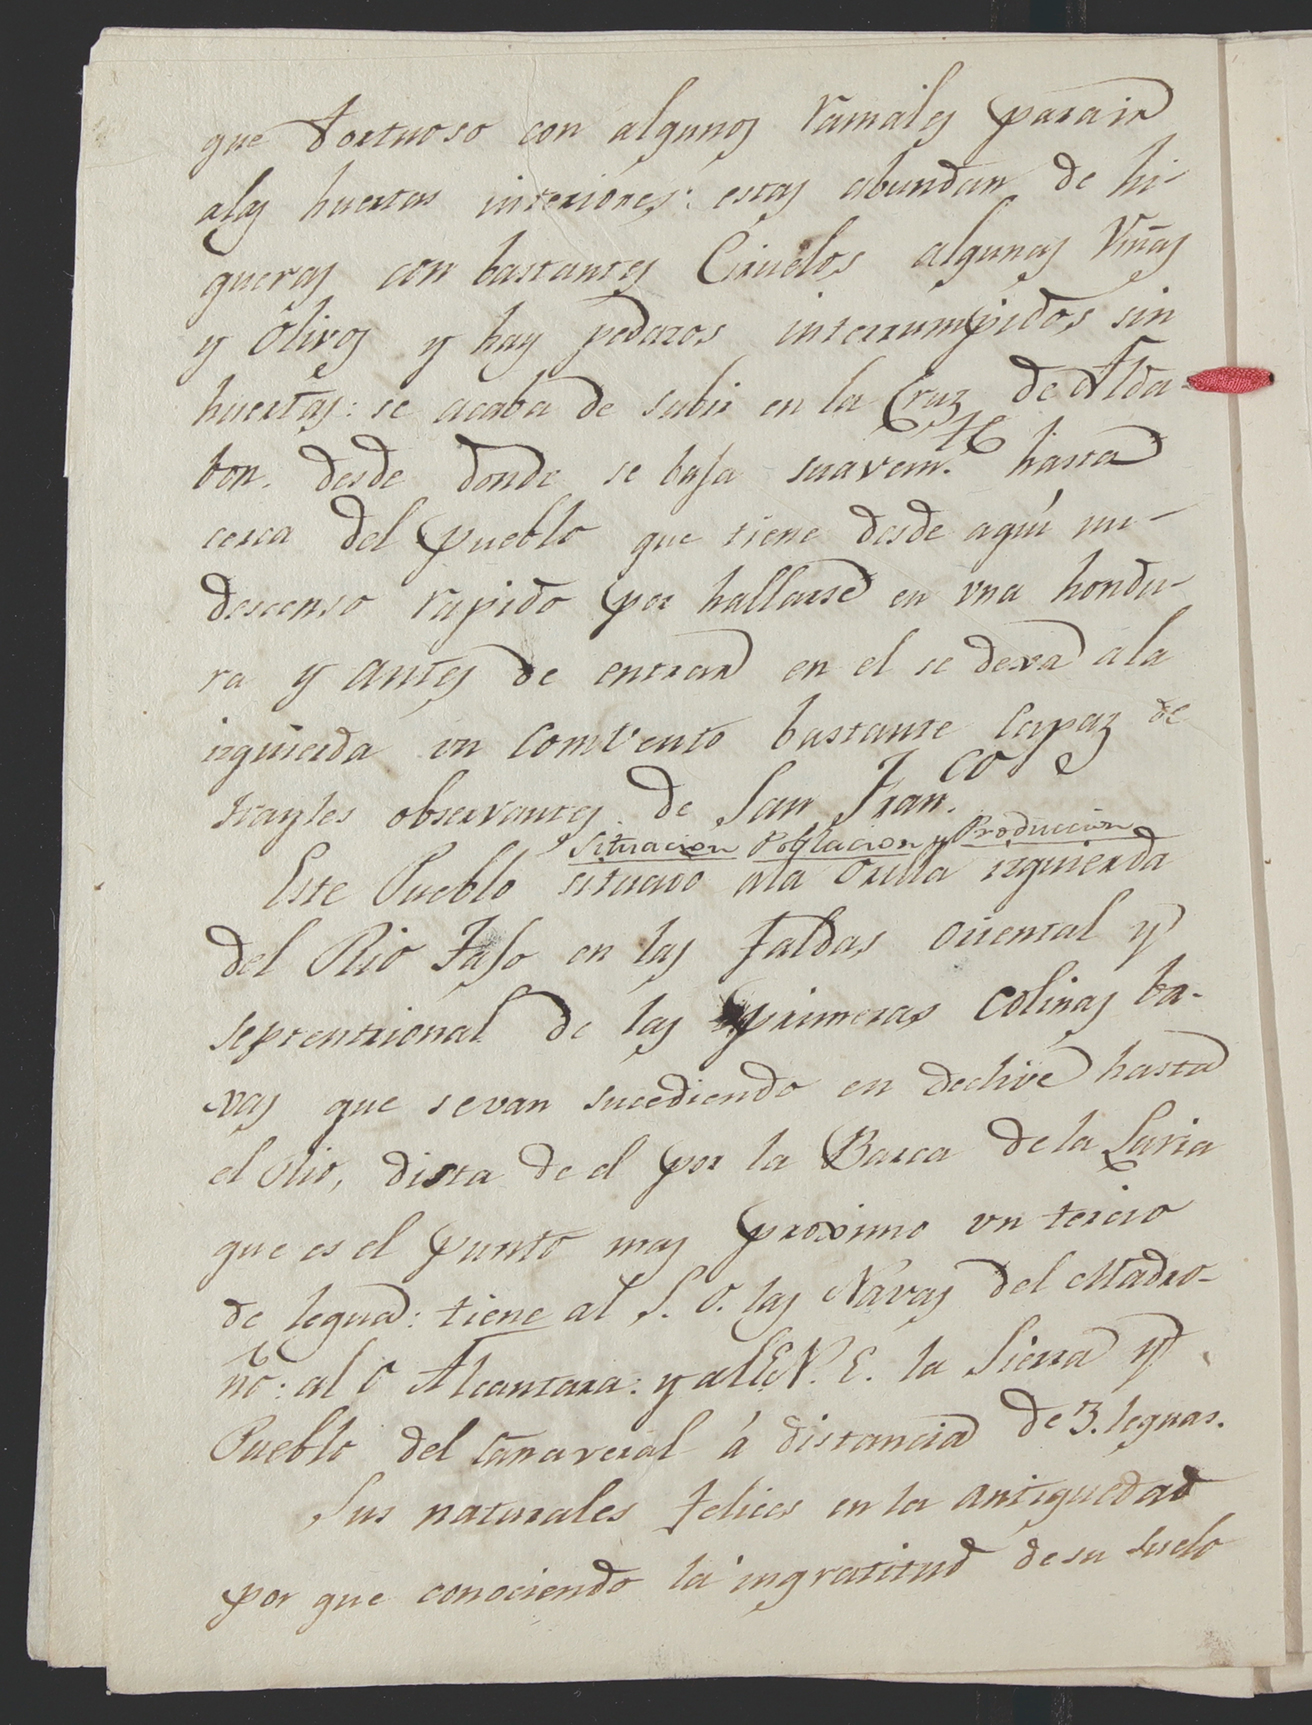 gue tortuoso con algunos ramales para ir
alas huertas interiores: estas abundan de hi-
gueras con bastantes Ciruelos algunas Viñas
y Olivos y hay pedazos interrumpidos sin
huertas: se acaba de subir en la Cruz de Alda-
bon. desde donde se baja suavem.te hasta
cerca del pueblo que tiene desde aquí un-
descenso rapido por hallarse en vna hondu-
ra y antes de entrar en el se dexa ala
izquierda un comvento bastante capaz de
frayles observantes de San Fran.co
Situacion Poblacion y Produccion
Este Pueblo situado ala Orilla izquierda
del Rio Tajo en las faldas oriental y
septentrional de las primeras colinas ba-
xas que se van sucediendo en declive hasta
el Rio, dista de el por la Barca de la Luria
que es el punto mas proximo vn tercio
de legua: tiene al S. O. las Navas del Madro-
ño: al O Alcantara: y al E N. E. la Sierra y
Pueblo del Cañaveral á distancia de 3. leguas.
Sus naturales felices en la antiguedad
por que conociendo la ingratitud de su suelo